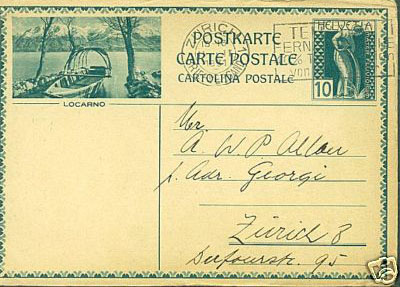 POSTKARTE
CARTE POSTALE
CARTOLINA POSTALE
HELVETIA
10
LOCARNO
Mr.
A W P Allan
p. Adr. Georgi
Zürich 8
Dufourstr. 95